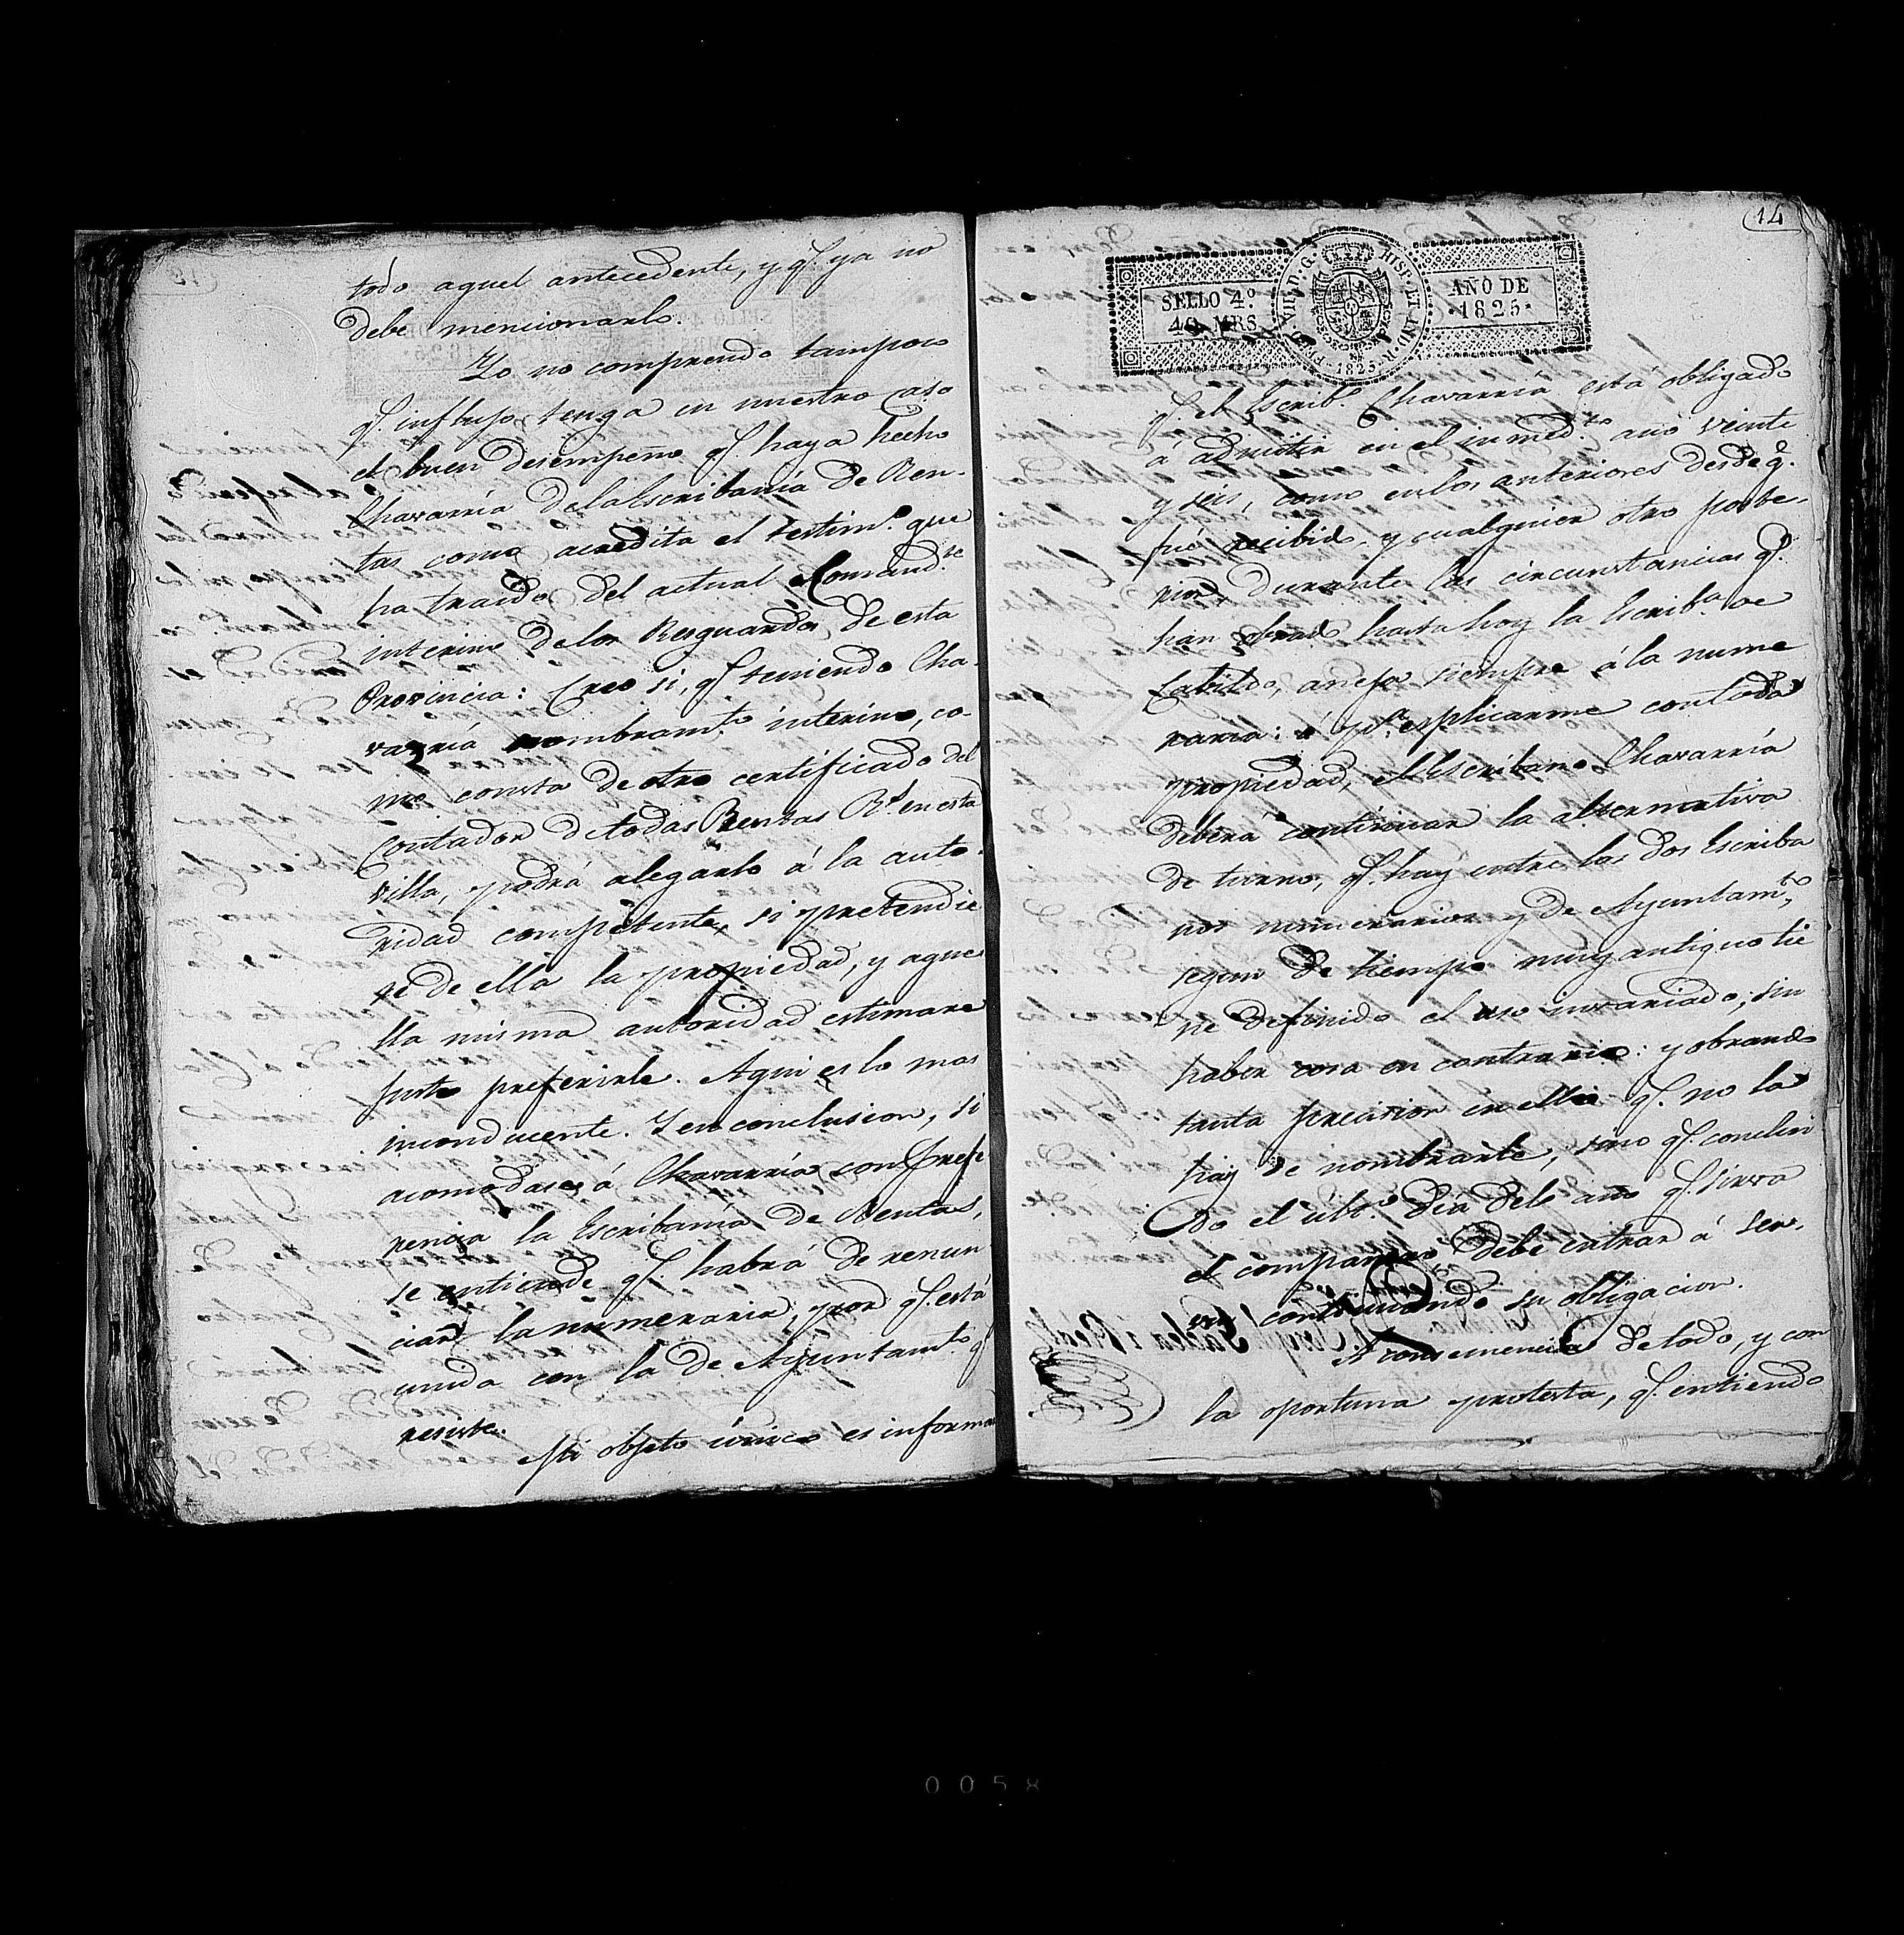 todo aquel antecedente, y q.e ya no
debe mencionarlo.
Yo no comprendo tampoco
q.e influjo tenga en nuestro caso
el buen desempeño q.e haya hecho
Chavarría dela Escribanía de Ren-
tas como acredita el testim.o que
ha traido del actual Comand.te
interino delos Resguardos de esta
Provincia: Creo si, q.e teniendo Cha-
varría nombram.to interino, co-
mo consta de otro certificado del
Contador de todas Rentas R.s en esta
villa, podrá alegarlo á la auto-
ridad competente, si pretendie
re de ella la propiedad, y aque
lla misma autoridad estimare
justo preferirle. Aqui es lo mas
inconducente. Y en conclusion, si
acomodase á Chavarría con prefe
rencia la Escribanía de Rentas,
se entiende q.e habrá de renun
ciar la numeraria; por q.e está
unida con la de Ayuntam.to q.e
resiste.
Mi objeto único es informar
14
SELLO 4.º
40 MRS
FERD. VII. D. G. HISP. ET IND. R.
1825
AÑO DE
1825
q.e el Escrib.o Chavarría está obligado
á admitir en el inmed.to año veinte
y seis, como en los anteriores desde q.e
fué recibido, y cualquier otro poste-
rior, durante las circunstancias q.e
han obrado hasta hoy la Escrib.a de
Cabildo, aneja siempre á la nume
raria: ó p.a esplicarme con toda
propiedad, el Escribano Chavarría
deberá continuar la alternativa
de turno, q.e hay entre los dos Escriba
nos numerarios y de Ayuntam.to,
segun de tiempo muy antiguo tie
ne definido el uso invariado; sin
haber cosa en contrario: y obrando
tanta precision en ello q.e no la
hay de nombrarle, sino q.e conclui
do el ult.o dia del año q.e sirva
el compañero, debe entrar á ser-
vir continuando su obligacion.
A consecuencia de todo, y con
la oportuna protesta, q.e entiendo
0058